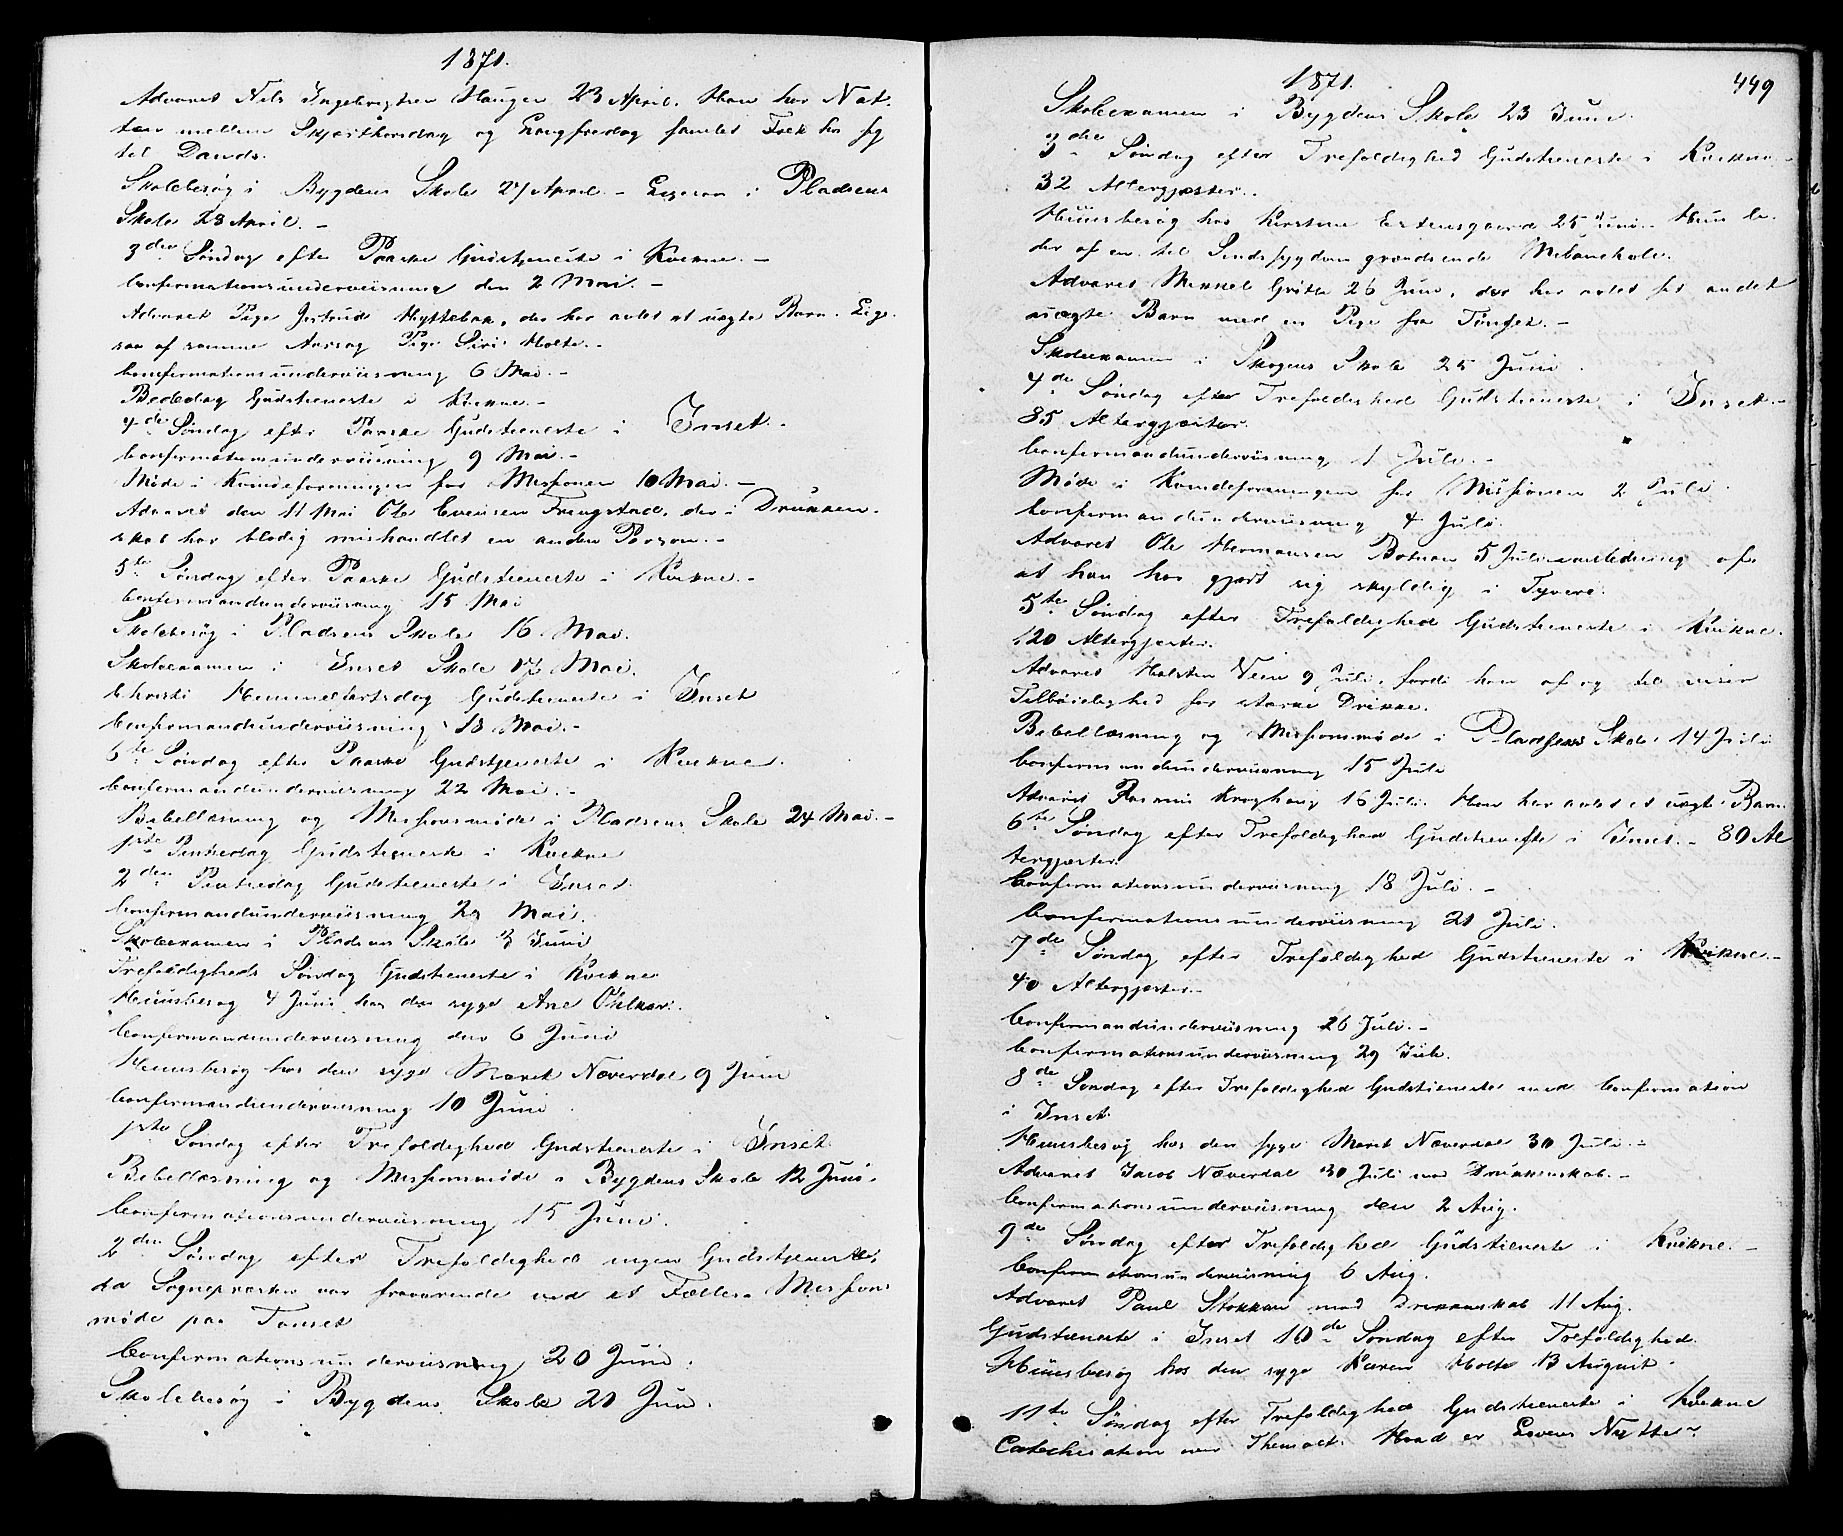 1871.
Advaret Nils Ingebrigtsen Haugen 23 April. Han har Nat-
ten mellem Skjærthorsdag og Langfredag samlet Folk hos sig
til Dands.
Skolebesøg i Bygdens Skole 27 April. - Ligesaa i Pladsens
Skole 28 April. -
3die Søndag efter Paaske Gudstjeneste i Kvikne. -
Confirmationsunderviisning den 2 Mai. -
Advaret Pige Gertrud Hyttebak, der har avlet et uægte Barn. Lige-
saa af samme Aarsag Pige Siri Holte. -
Confirmationsunderviisning 6 Mai. -
Bededag Gudstieneste i Kvikne. -
4de Søndag efter Paaske Gudstieneste i Inset. -
Confirmationsunderviisning 9 Mai. -
Møde i Kvindeforeningen for Missionen 10 Mai. -
Advaret den 11 Mai Ole Evensen Frengstad, der i Drukken-
skab har blodig mishandlet en anden Person. -
5te Søndag efter Paaske Gudstieneste i Kvikne. -
Confirmandunderviisning 15 Mai
Skolebesøg i Pladsens Skole 16 Mai.
Skoleexamen i Inset Skole 17 Mai.
Christi Himmelfartsdag Gudstieneste i Inset
Confirmandunderviisning 18 Mai. -
6te Søndag efter Paaske Gudstjeneste i Kvikne.
Confirmandunderviisning 22 Mai. -
Bibellæsning og Missionsmøde i Pladsens Skole 24 Mai. -
1ste Pintsedag Gudstieneste i Kvikne
2den Pintsedag Gudstieneste i Inset.
Confirmandunderviisning 29 Mai.
Skoleexamen i Pladsens Skole 3 Juni
Trefoldigheds Søndag Gudstieneste i Kvikne
Huusbesøg 4 Juni hos den syge Ane
Confirmandunderviisning den 6 Juni
Huusbesøg hos den syge Marit Næverdal 9 Juni
Confirmandunderviisning 10 Juni.
1ste Søndag efter Trefoldighed Gudstieneste i Inset
Bibellæsning og Missionsmøde i Bygdens Skole 12 Juni.
Confirmationsunderviisning 15 Juni.
2den Søndag efter Trefoldighed ingen Gudstjeneste,
da Sognepræsten var fraværende ved et Fælles Missions
møde paa Tønset
Confirmationsunderviisning 20 Juni.
Skolebesøg i Bygdens Skole 20 Juni.
1871.
449
Skoleexamen i Bygdens Skole 23 Juni.
3die Søndag efter Trefoldighed Gudstieneste i Kvikne. -
32 Altergjæster.
Huusbesøg hos Kirstine Estensgaard 25 Juni. Hun li-
der af en til Sindssygdom grændsende Melancholi.
Advaret Mikkel Gritte 26 Juni, der har avlet sit andet
uægte Barn med en Pige fra Tønset. -
Skoleexamen i Skogens Skole 25 Juni.
4de Søndag efter Trefoldighed Gudstieneste i Inset. -
85 Altergjæster.
Confirmandunderviisning 1 Juli. -
Møde i Kvindeforeningen for Missionen 2 Juli.
Confirmandunderviisning 4 Juli.
Advaret Ole Hermansen 5 Juli i anledning af
at han har gjort sig skyldig i Tyveri.
5te Søndag efter Trefoldighed Gudstieneste i Kvikne.
120 Altergjæster.
Advaret Halsten Veien 9 Juli, fordi han af og til viser
Tilbøielighed for stærke Drikke.
Bibellæsning og Missionsmøde i Pladsens Skole 14 Juli
Confirmandunderviisning 15 Juli
Advaret Rasmus Kroghaug 16 Juli. Han har avlet et uægte Barn.
6te Søndag efter Trefoldighed Gudstieneste i Inset. - 80 Al
tergjæster.
Confirmationsunderviisning 18 Juli. -
Confirmationsunderviisning 21 Juli.
7de Søndag efter Trefoldighed Gudstieneste i Kvikne. -
40 Altergjæster. -
Confirmandunderviisning 26 Juli. -
Confirmationsunderviisning 29 Juli.
8de Søndag efter Trefoldighed Gudstieneste med Confirmation
i Inset.
Huusbesøg hos den syge Marit Næverdal 30 Juli. -
Advaret Jacob Næverdal 30 Juli mod Drukkenskab. -
Confirmationsunderviisning den 2 Aug.
9de Søndag efter Trefoldighed Gudstieneste i Kvikne. -
Confirmationsunderviisning 6 Aug.
Advaret Paul Stokkan mod Drukkenskab 11 Aug.
Gudstieneste i Inset 10de Søndag efter Trefoldighed.
Huusbesøg hos den syge Karen Holte 13 August.
11te Søndag efter Trefoldighed Gudstieneste i Kvikne
Catechisation over Themaet: Hvad er Lovens Nytte?